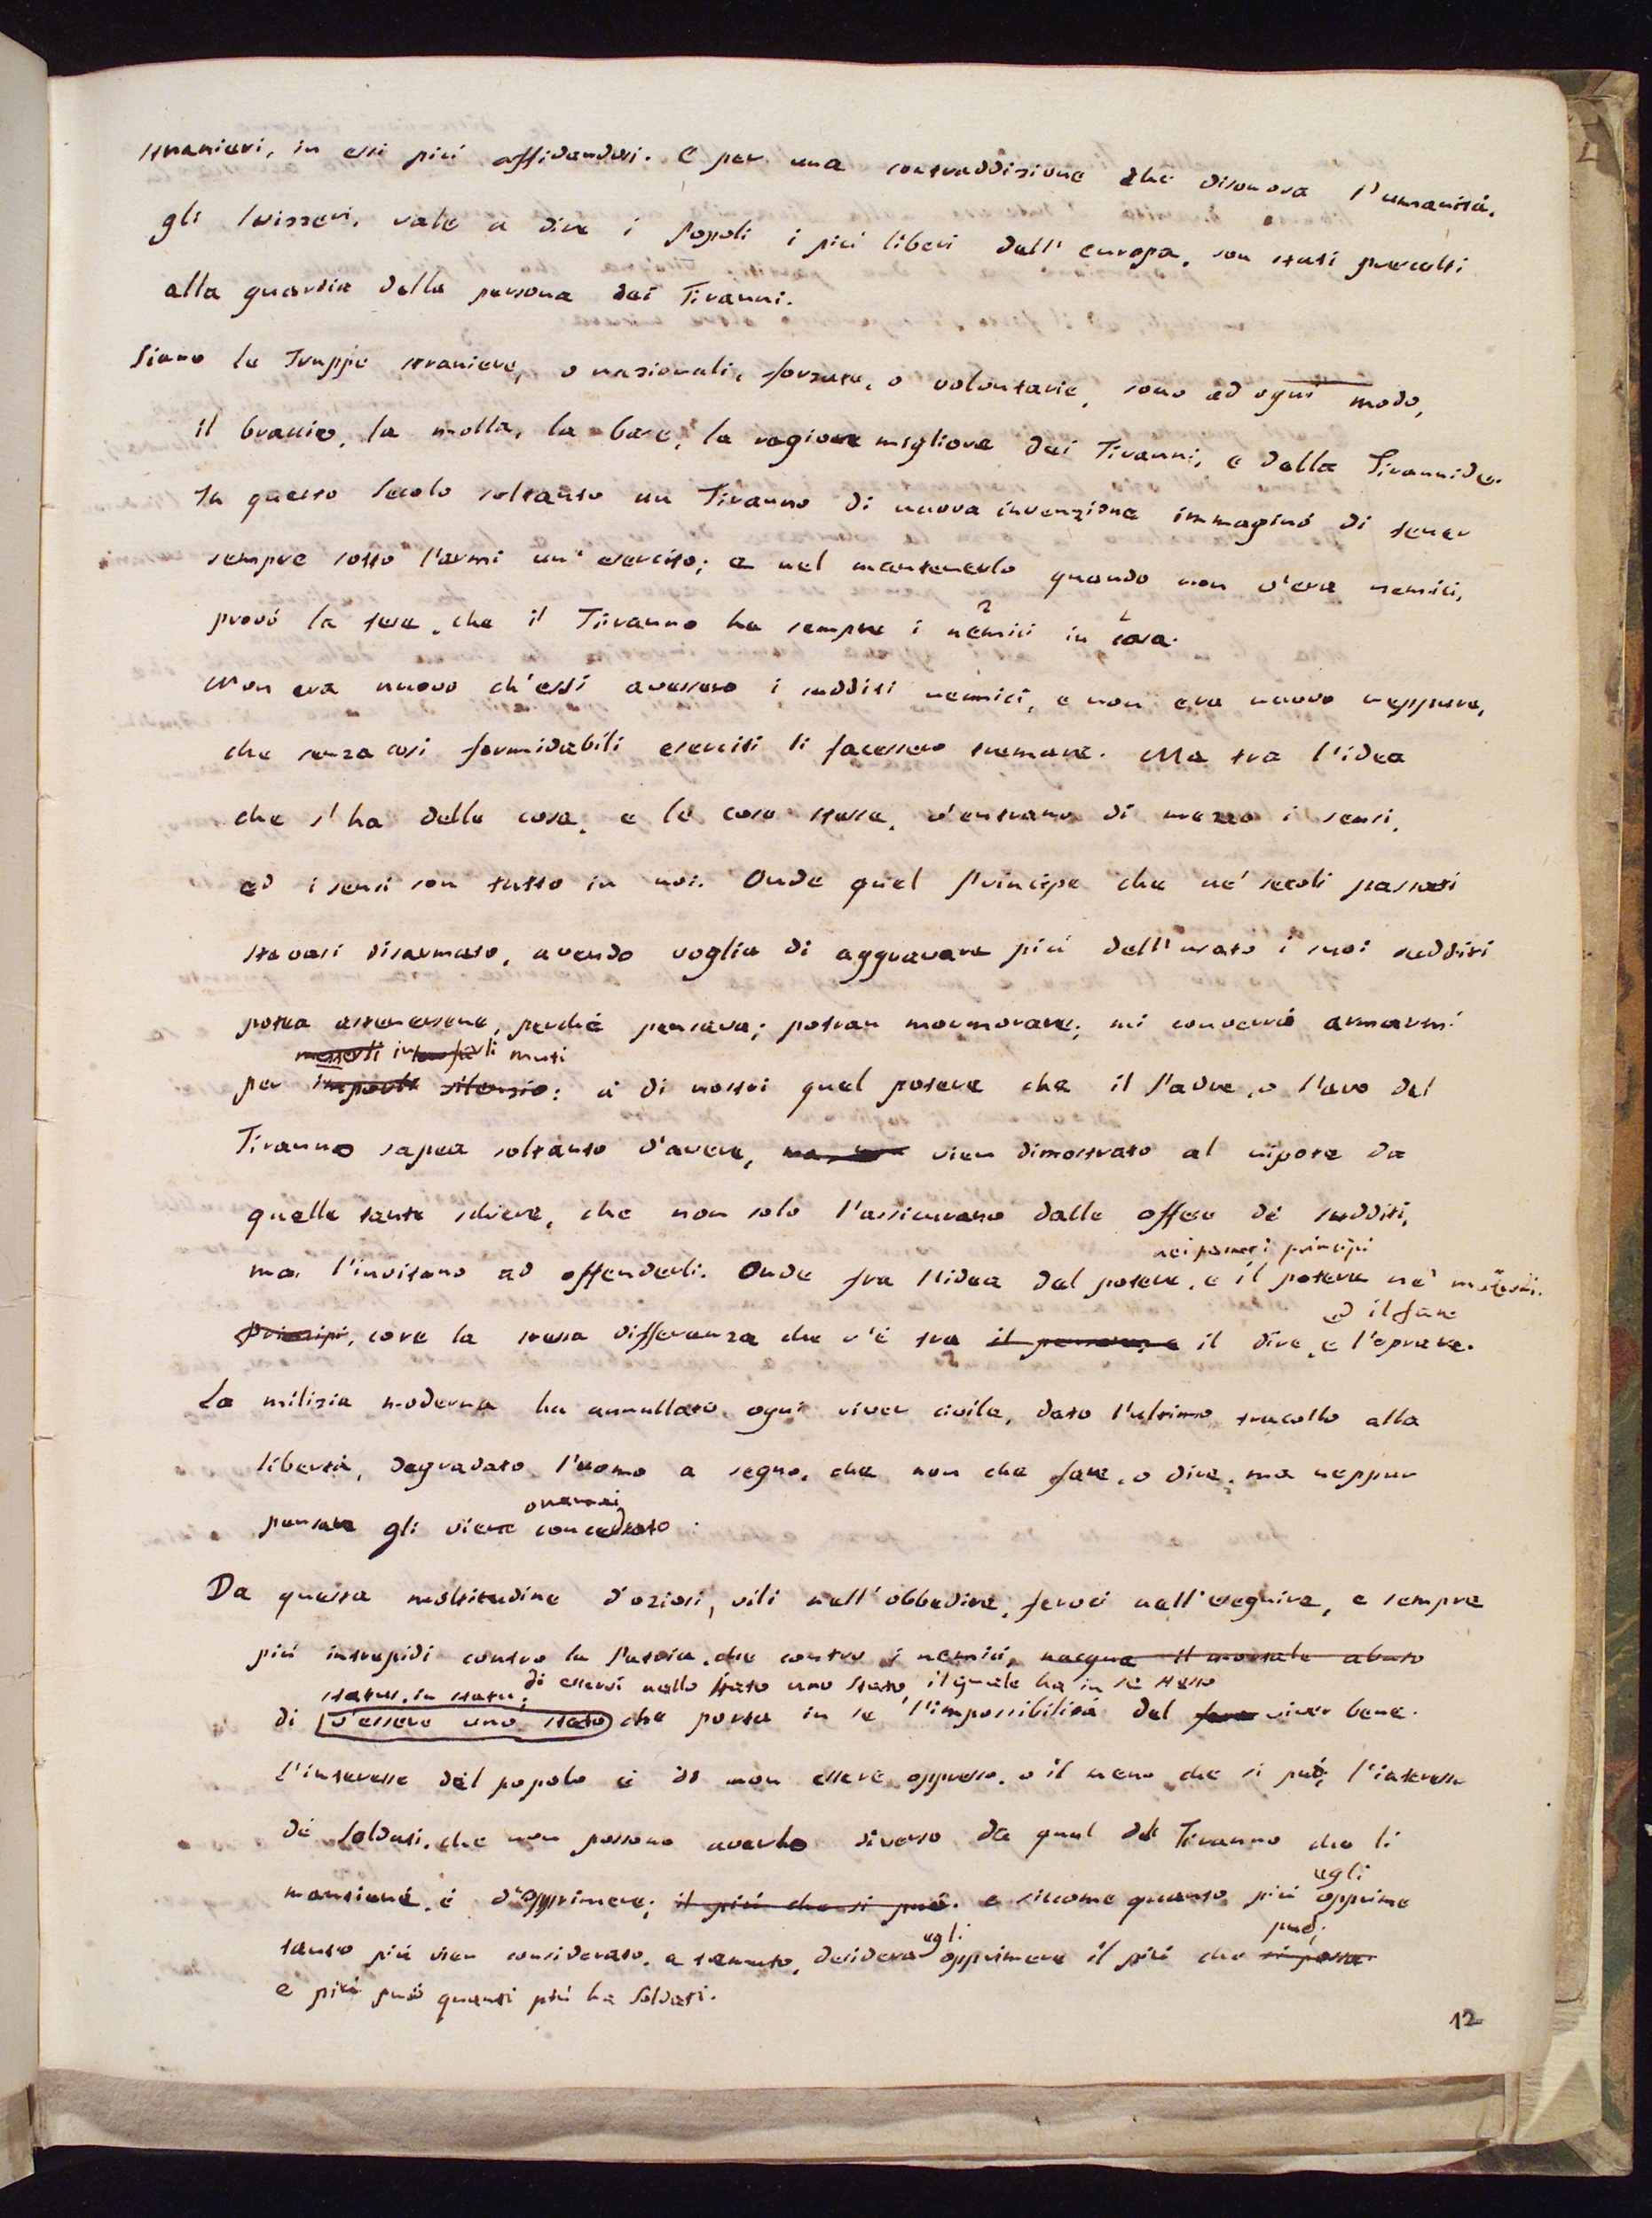 stranieri, in essi più affidandosi. E per una contraddizione che disonora l'umanità,
gli Svizzeri, vale a dire i Popoli i più liberi dell'europa, son stati prescelti
alla guardia della persona dei Tiranni.
Siano le Truppe straniere, o nazionali, forzate, o volontarie, sono ad ogni modo,
il braccio, la molla, la base, la ragione migliore dei Tiranni, e della Tirannide.
In questo Secolo soltanto un Tiranno di nuova invenzione immaginò di tener
sempre sotto l'armi un' esercito; e nel mantenerlo quando non v'era nemici,
provò la tese, che il Tiranno ha sempre i nemici in Casa.
2 1
Non era nuovo ch'essi avessero i sudditi nemici, e non era nuovo neppure,
che senza così formidabili eserciti li facessero tremare. Ma tra l'idea
che s'ha delle cose, e le cose stesse, v'entrano di mezzo i sensi,
ed i sensi son tutto in noi. Onde quel Principe che ne' secoli passati
stavasi disarmato, avendo voglia di aggravare più dell'usato i suoi sudditi
potea astenersene, perchè pensava; potran mormorare; mi converrà armarmi
metterli in farli muti
per imporle silenzio: a' dì nostri quel potere che il Padre, o l'avo del
Tiranno sapea soltanto d'avere, vien dimostrato al nipote da
quelle tante schiere, che non solo l'assicurano dalle offese de' sudditi,
nei primi principi
ma l'invitano ad offenderli. Onde fra l'idea del potere, e il potere ne' moderni
ed il fare
Principi, core la stessa differenza che v'è tra il pensare, e il dire, e l'oprare.
La milizia moderna ha annullato ogni viver civile, dato l'ultimo tracollo alla
libertà, degradato l'uomo a segno, che non che fare, o dire, ma neppur
oramai
pensare gli viene conceduto.
Da questa moltitudine d'oziosi, vili nell'obbedire, feroci nell'eseguire, e sempre
più intrepidi contro la Patria, che contro i nemici, nacque il mortale abuso
status in statu; di esservi nello stato uno stato, il quale ha in sè stesso
di v'essere uno stato che porta in se l'impossibilità del fare viver bene.
l'interesse del popolo è di non essere oppresso, o il meno che si può; l'interesse
de' Soldati, che non possono averlo diverso da quel del Tiranno che li
egli
mantiene, è d'opprimere; il più che si può. e siccome quanto più opprime
egli può;
tanto più vien considerato, e temuto, desidera opprimere il più che si possa
e più può quanti più ha Soldati.
12